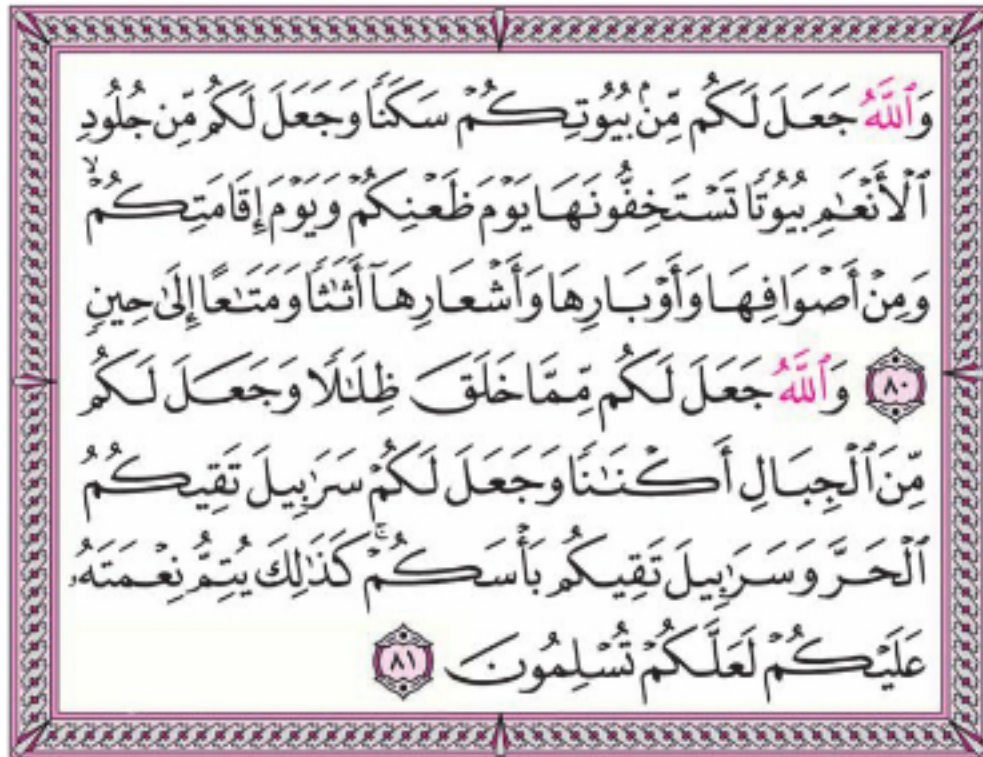 وَٱللَّهُ جَعَلَ لَكُم مِّنۢ بُيُوتِكُمْ سَكَنًا وَجَعَلَ لَكُم مِّن جُلُودِ
ٱلْأَنْعَٰمِ بُيُوتًا تَسْتَخِفُّونَهَا يَوْمَ ظَعْنِكُمْ وَيَوْمَ إِقَامَتِكُمْ ۙ
وَمِنْ أَصْوَافِهَا وَأَوْبَارِهَا وَأَشْعَارِهَآ أَثَٰثًا وَمَتَٰعًا إِلَىٰ حِينٍ
٨٠ وَٱللَّهُ جَعَلَ لَكُم مِّمَّا خَلَقَ ظِلَٰلًا وَجَعَلَ لَكُم
مِّنَ ٱلْجِبَالِ أَكْنَٰنًا وَجَعَلَ لَكُمْ سَرَٰبِيلَ تَقِيكُمُ
ٱلْحَرَّ وَسَرَٰبِيلَ تَقِيكُم بَأْسَكُمْ ۚ كَذَٰلِكَ يُتِمُّ نِعْمَتَهُۥ
عَلَيْكُمْ لَعَلَّكُمْ تُسْلِمُونَ ٨١